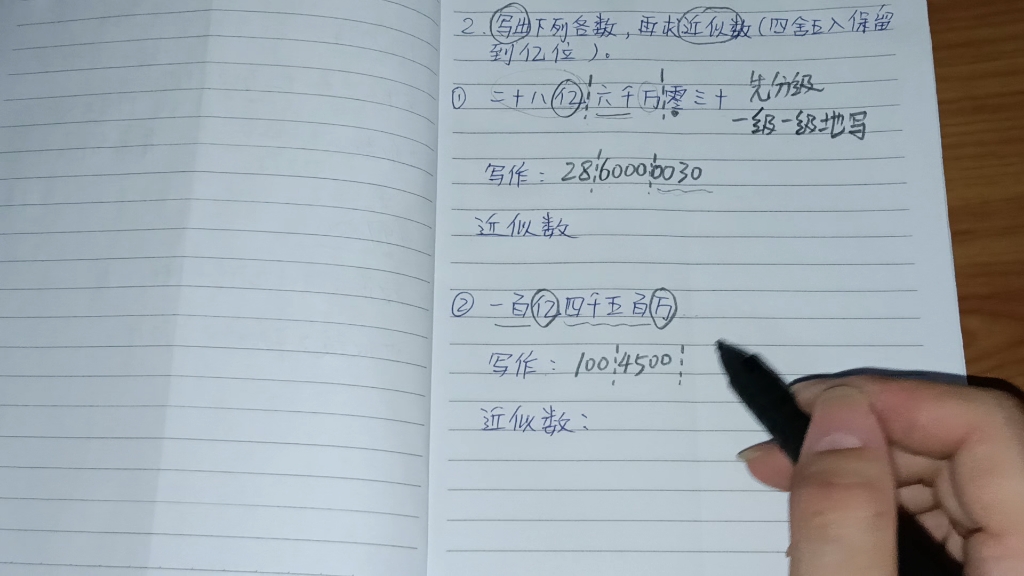 2. 写出下列各数，再求近似数（四舍五入保留
到亿位）。
① 二十八亿六千万零三十 先分级
一级一级地写
写作：28 6000 0030
近似数
② 一百亿四千五百万
写作：100 4500
近似数：